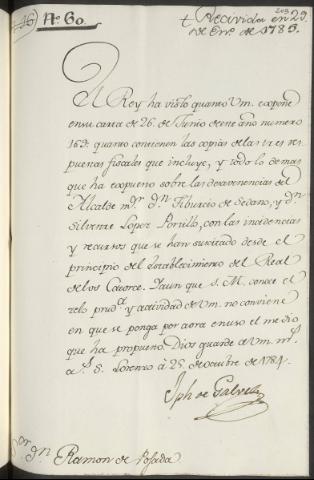 N.º 60.
Recivida en 29.
de En.º de 1785.
El Rey ha visto quanto Vm. expone
en su carta de 26. de Junio de este año numero
169. quanto contienen las copias de las tres res
puestas fiscales que incluye, y todo lo demas
que ha expuesto sobre las desavenencias del
Alcalde m.ʳ d.ⁿ Tiburcio de Sedano, y d.ⁿ
Silvestre Lopez Portillo, con las incidencias
y recursos que se han suscitado desde el
principio del establecimiento del Real
de los Catorce. Y aun que S. M. conoce el
zelo prud.ª y actividad de Vm. no conviene
en que se ponga por aora en uso el medio
que ha propuesto. Dios guarde a Vm. m.ˢ
a.ˢ S. Lorenzo à 25. de octubre de 1784.
Jph de Galvez
S.ºʳ d.ⁿ Ramon de Posada